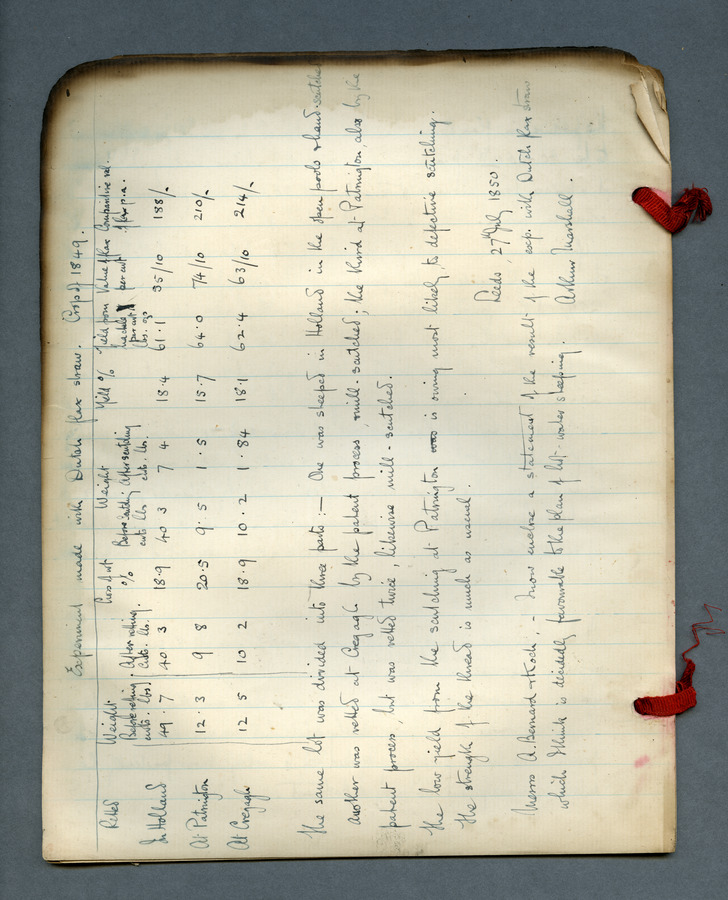 Experiment made with Dutch flax straw. Crop of 1849.
Retted Weight Loss of wt % Weight Yield % Yield from Value of flax per cwt Comparative val. of flax p.a.
Before retting. cwts. lbs. After retting. cwts. lbs. Before scutching cwts lbs After scutching cwts. lbs. per cwt lbs. ozs
In Holland 49 . 7 40 3 18.9 40 3 7 4 18.4 61.1 95/10 188/-
At Patrington 12 . 3 9 8 20.5 9 . 5 1 . 5 15.7 64.0 74/10 210/-
At Cregagh 12 5 10 2 18.9 10 . 2 1 . 84 18.1 62.4 63/10 214/-
The same lot was divided into three parts :— One was steeped in Holland in the open pools & hand-scutched
another was retted at Cregagh by the patent process, mill-scutched ; the third at Patrington, also by the
patent process, but was retted twice, likewise mill-scutched.
The low yield from the scutching at Patrington is owing most likely, to defective scutching.
The strength of the thread is much as usual.
Leeds, 27th July 1850.
Messrs A. Bernard & Koch, - I now enclose a statement of the result of the exp. with Dutch flax straw
which I think is decidedly favourable to the plan of hot-water steeping.
Arthur Marshall.